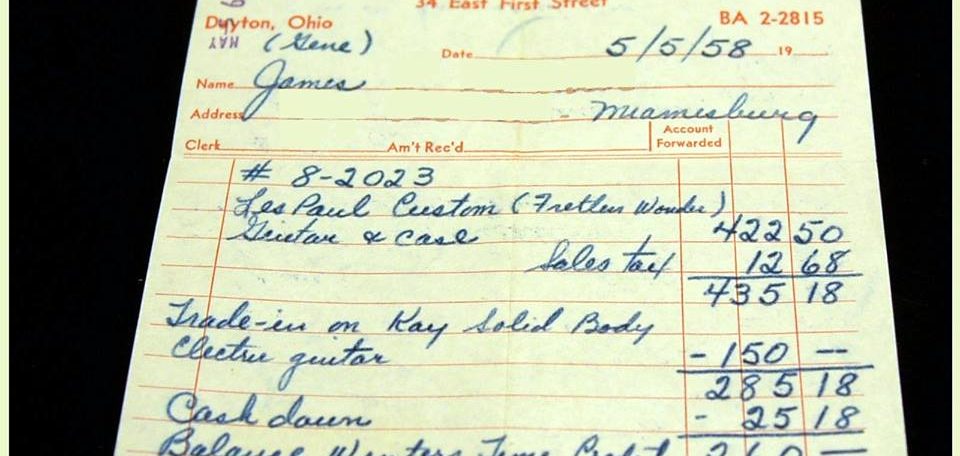 34 East First Street
Dayton, Ohio
BA 2-2815
MAY
(Gene)
Date 5/5/58 19
Name James
Address Miamisburg
Clerk Am't Rec'd Account Forwarded
# 8-2023
Les Paul Custom (Fretless Wonder)
Guitar & Case 422 50
Sales tax 12 68
435 18
Trade-in on Kay Solid Body
Electric guitar - 150 --
285 18
Cash down - 25 18
Balance Winters Time Credit 260 —